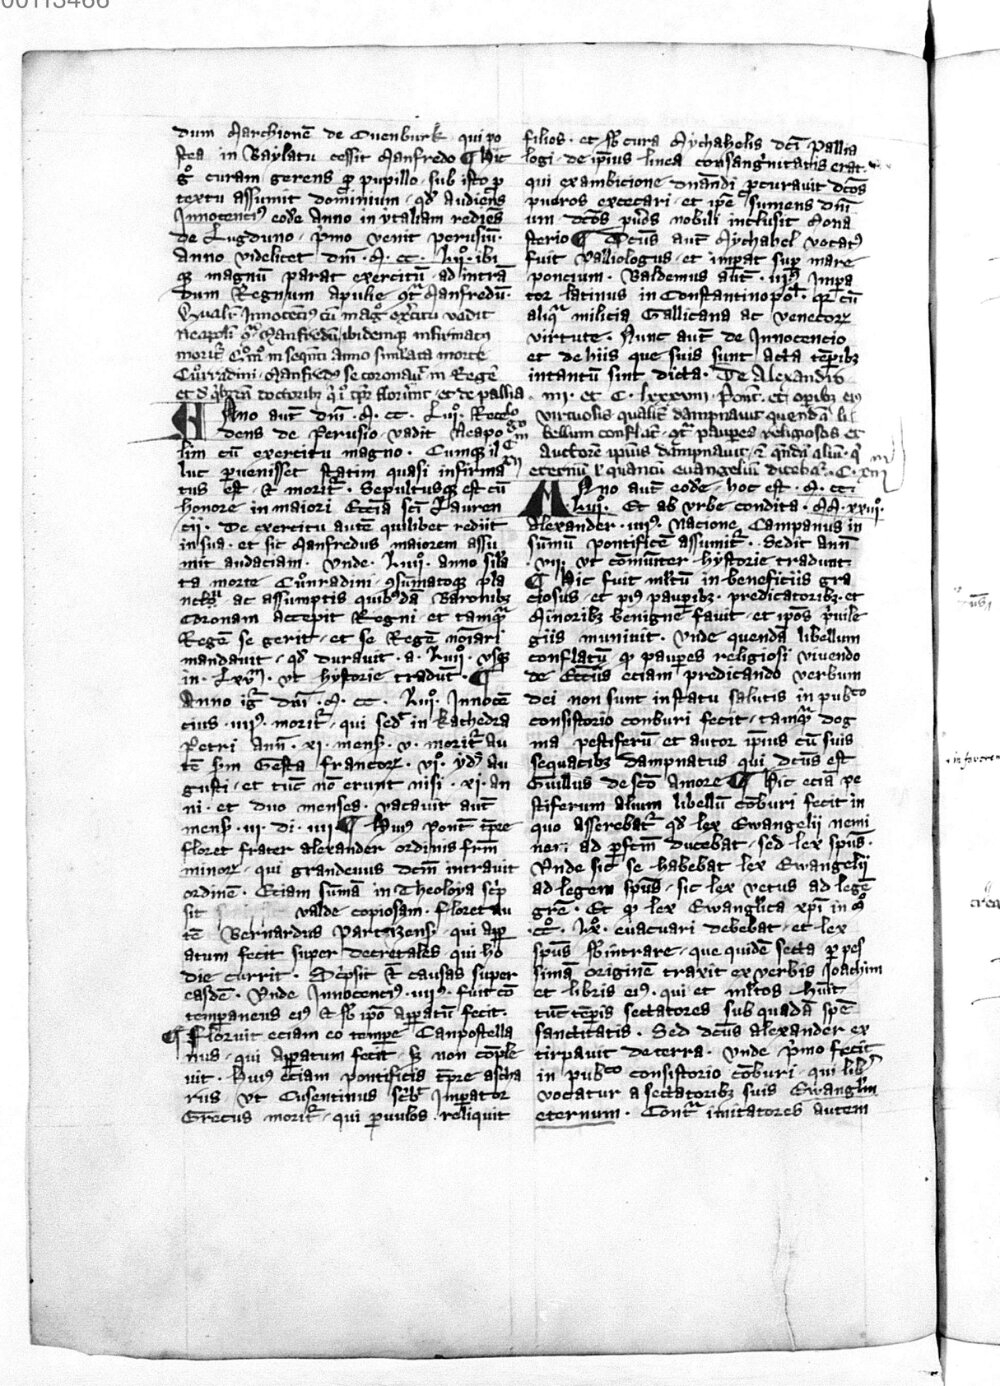 00113466
dum Marchionē de Ouenburk qui po
stea in Baylatu cessit Manfredo ¶ Hic
gͦ curam gerens ꝓ pupillo sub isto p
textu assumit dominium qd̄ audiens
Innocenciꝰ eodē Anno in ytaliam rediēs
de Lugduno p̄mo venit perusiū
anno videlicet dn̄i M cc Liijͦ ibi
qꝫ magnū parat exercitū ad intrā
dum Regnum apulie ꝯtᵃ Manfredū
Qualit̄ Innocenciꝰ cū magͦ exc̄itu vadit
Neapoli ꝯᵃ Manfredū ibidemqꝫ infirmatꝰ
morit̄ in seqūti anno simulata morte
Cūrradini Manfredꝰ se coronauit in Regē
doctoribꝫ qui floruerunt et de pallia
ANno aut̄ dn̄i M cc Liiijͦ Rece
dens de Perusio vadit Neapo
lim cū exercitu magno Cumqꝫ il
luc ꝑuenisset statim quasi infirma
tus est et morit̄ Sepultusqꝫ est cū
honore in maiori Eccīa sc̄i Lauren
cij De exercitu autē quilibet rediit
in sua et sic Manfredus maiorem assu
mit audaciam Vnde Liiijͦ anno sil̄a
ta morte Cūnradini ꝯsūmatoqꝫ pla
nctu ac assumptis quibꝰdā Baronibꝫ
Coronam accepit Regni et tamqᵃ
Regē se gerit et se Regē noīari
mandauit qd̄ durauit a Liiijͦ vsqꝫ
in Lxv ut hystorie tradūt ¶
Anno igr̄ dn̄i M cc Liiijͦ Innocē
cius iiijꝰ morit̄ qui sed̄ in kathedra
Petri Ann̄ xi mens̄ v morit̄ au
tē scd̄m Gesta francorꝝ vijͦ yd̄ au
gusti et tūc nō erunt nisi xi an
ni et duo menses vacauit aut̄
mens̄ iij di iiij ¶ Huiꝰ pont̄ tp̄re
floret frater alexander ordinis frm̄
minorꝝ qui grandeuus dc̄m intrauit
ordinē Eciam sūmā in Theoloya sc̄p
sit valde copiosam floret au
tē Bernardus Parmens̄ qui app
atum fecit super decretales qui ho
die currit Sc̄psit et causas super
easdē Vnde Innocenciꝰ iiijꝰ fuit cō
tempaneus eiꝰ et sb̄ ipō appatū fecit
¶ Floruit eciam eo tempe Canpostella
nus qui appatum fecit sꝫ non cōple
uit Huiꝰ eciam pontificis tp̄re ascha
rius ut Cusentinus sc̄bit Imꝑator
Grecus morit̄ qui ꝑuulos reliquit
filios et sb̄ cura Mychahelis dc̄i pallia
logi de ip̄ius linea consang̊nitatis erat
qui ex ambicione dn̄andi ꝓcurauit dc̄os
pueros excecari et ip̄e sumens dn̄i
um dc̄os pūos nobili inclusit Mona
sterio ¶ Dc̄us aut̄ Mychahel vocatꝰ
fuit Palliologus et imꝑat sup mare
ponticum Baldewinus aut̄ iiijꝰ Impa
tor latinus in Constantinopol̄ cū
aliqᵃ milicia Gallicana ac Venetorꝝ
virtute Nunc aut̄ de Innocencio
et de hiis que suis sunt acta tēpibꝫ
intantū sint dicta De Alexandro
iiij et C lxxxviij Pont̄ et opibꝫ eiꝰ
virtuosis qualit̄ dampnauit quendā li
bellum conflat̄ ꝯtᵃ pauꝑes religiosos et
auctorē ipsius dampnauit et quēdā aliū qͥ
eternū euangelium dicebat̄ C xiij
ANno aut̄ eodē hoc est M cc
Liiijͦ Et ab vrbe condita MM xxiijͦ
Alexander iiijꝰ Nacione Campanus in
sūmū pontificē assumit̄ Sedit ann̄
vij ut cōmūiter hystorie tradunt
¶ Hic fuit mltū in beneficiis gra
ciosus et piꝰ paupibꝫ predicatoribꝫ et
Minoribꝫ benigne fauit et ipōs p̄uile
giis muniuit Vnde quendā libellum
conflatū ꝙ pauꝑes religiosi viuendo
de Elc̄is eciam predicando verbum
dei non sunt in statu salutis in pubᶜᵒ
consistorio conburi fecit tamqᵃ dog
ma pestiferū et autor ip̄ius cū suis
sequacibꝫ dampnatus qui dc̄us est
Guillus de sc̄o Amore ¶ Hic eciā pe
stiferum alium libellū cōburi fecit in
quo asserebat̄ qd̄ lex Ewangelii nemi
nem ad ꝑfc̄m ducebat sed lex sp̄us
Vnde sic se habebat lex Ewangelij
ad legem sp̄us sic lex vetus ad legē
grē Et ꝙ lex Ewanglīca xp̄i in Mͦ
ccͦ Lxͦ euacuari debebat et lex
sp̄us sb̄intrare que quidē secta ꝑ pes
sima originē traxit ex verbis Joachim
et libris eiꝰ qui et mltos hūit
tūc tēpis sectatores sub quadā spē
sanctitatis Sed dc̄us alexander ex
tirpauit de terra Vnde p̄mo fecit
in pubᶜᵒ consistorio cōburi qui lib̄
vocatur a sectatoribꝫ suis Ewanglm̄
eternum Contᵃ imitatores autem